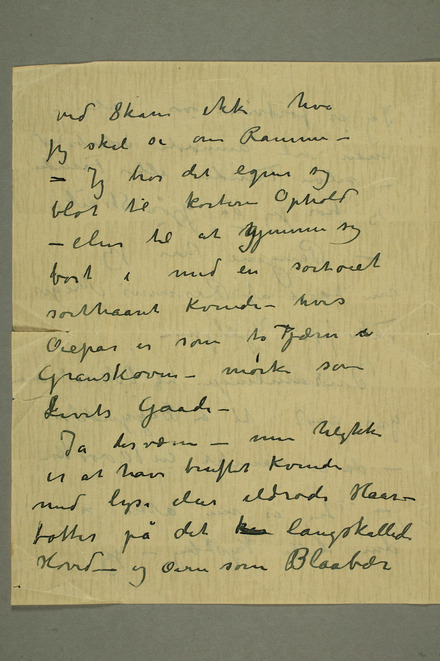 ved Skam ikke hva
jeg skal si om Rammen –
– Jeg tror det egner sig
blot til kortere Ophold
– eller til at gjemme sig
bort i med en sortøiet
sorthaaret Kvinde – hvis
Øiepar er som to Tjærn i
Granskoven – mørke som
Livets Gaade –
Ja desværre – men
er at have Kvinde
med lyse eller ildrøde Haar–
totter på det langskallede
Hoved – og Øine som Blaabær